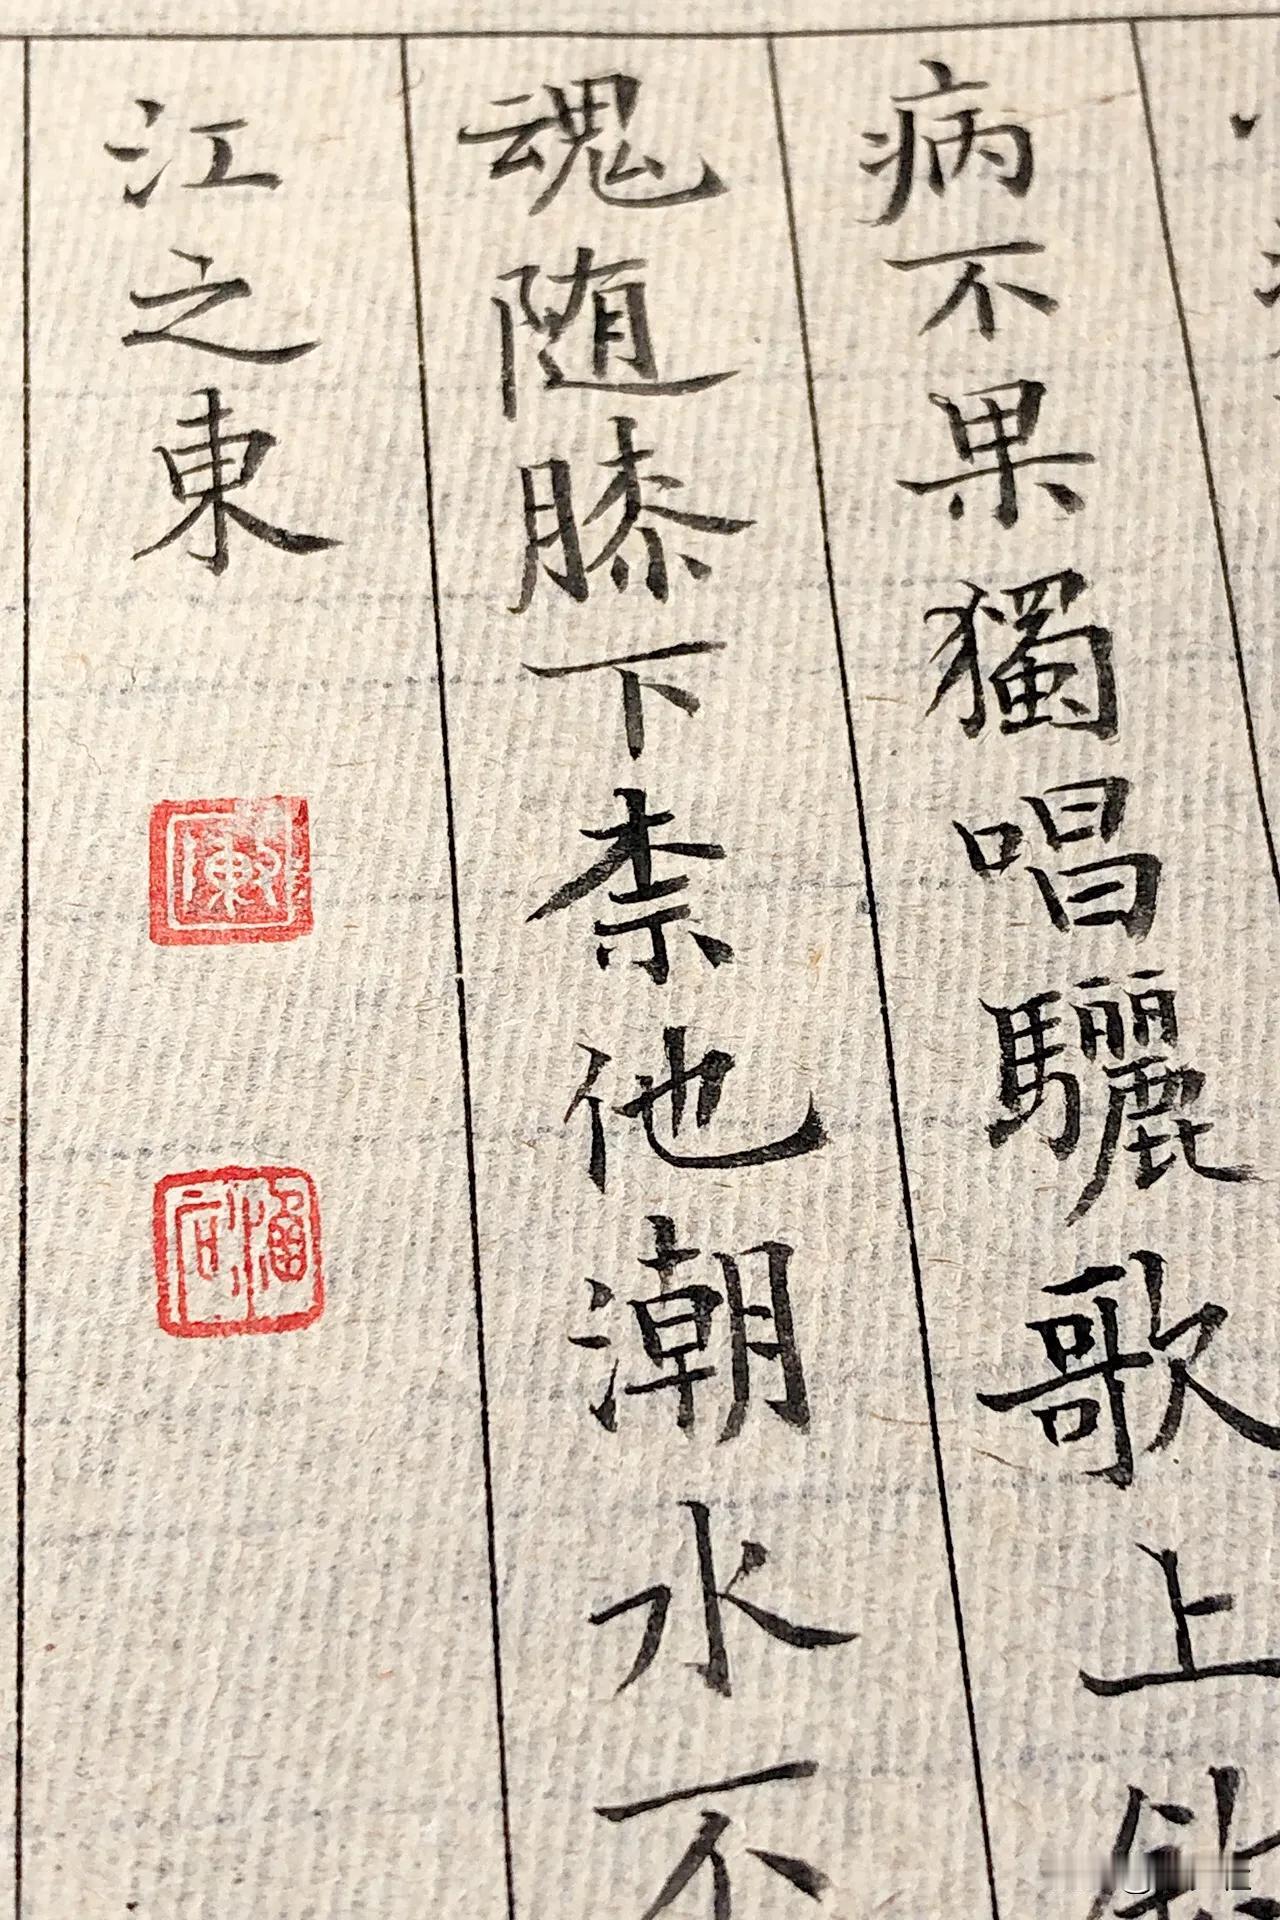 病不果獨唱驪歌上
魂随膝下柰他潮水不
江之東